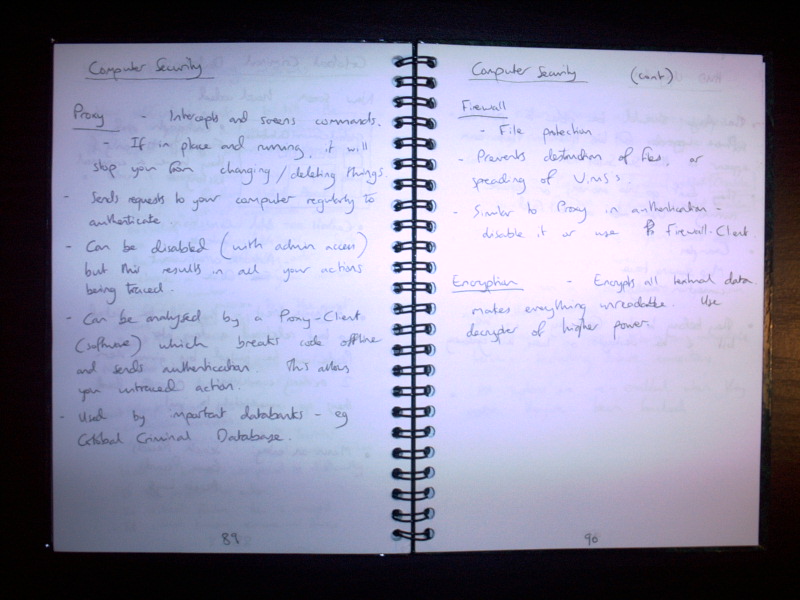 Computer Security
Proxy - Intercepts and screens commands.
- If in place and running, it will
stop you from changing/deleting things.
- Sends requests to your computer regularly to
authenticate.
- Can be disabled (with admin access)
but this results in all your actions
being traced.
- Can be analysed by a Proxy-Client
(software) which breaks code offline
and sends authentication. This allows
you untraced action.
- Used by important databanks - eg
Global Criminal Database.
89
Computer Security (cont)
Firewall
- File protection
- Prevents destruction of files, or
spreading of
- Similar to Proxy in authentication -
disable it or use Firewall-Client.
Encryption - Encrypts all textual data.
makes everything unreadable. Use
decrypter of higher power.
90